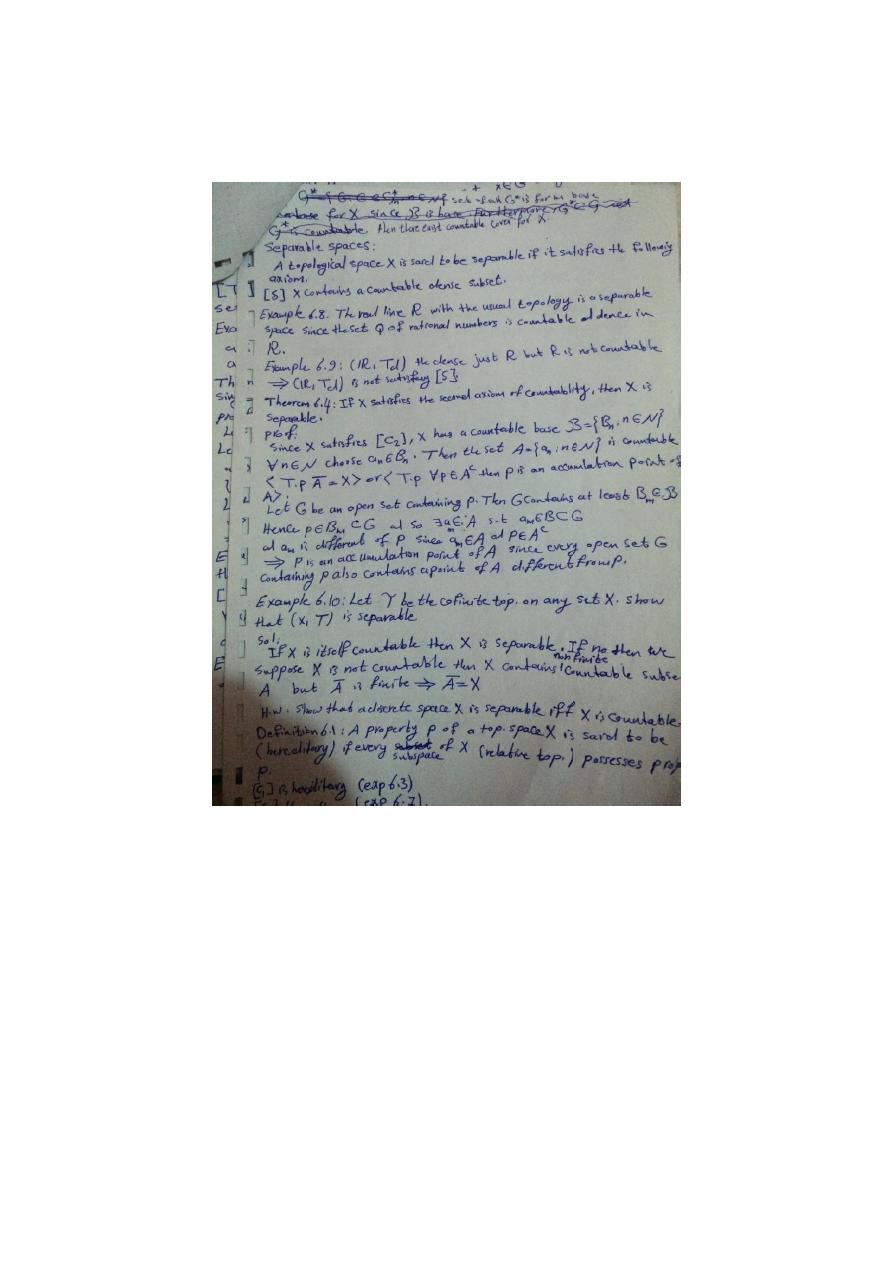 x∈G
G* = { G: G ∈ G*n, n∈N} set - G* is for m base
base for X since B is base. Furthermore, G* ⊂ G and
G* is countable. then there exist countable cover for X.
Separable spaces:
A topological space X is said to be separable if it satisfies the following
axiom.
[S] X contains a countable dense subset.
Example 6.8. The real line R with the usual topology is a separable
space since the set Q of rational numbers is countable ad dence in
R.
Example 6.9: (IR, Td) the dense just R but R is not countable
⇒ (IR, Td) is not satisfay [S]
Theorem 6.4: If X satisfies the second axiom of countablity, then X is
separable.
proof:
Since X satisfies [C2], X has a countable base B={Bn: n∈N}
∀n∈N choose an∈Bn. Then the set A={an: n∈N} is countable
< T.p Ā = X> or < T.p ∀p∈Aᶜ then p is an accumulation point of
A>.
Let G be an open set containing p. Then G contains at least Bm∈B
Hence p∈Bm ⊂G al so ∃am∈A s.t am∈B⊂G
ad am is different of P since am∈A ad p∈Aᶜ
⇒ P is an accumulation point of A since every open set G
containing p also contains a point of A different from p.
Example 6.10: Let T be the cofinite top. on any set X. show
that (X, T) is separable
Sol:
If X is itself countable then X is separable. If no then we
suppose X is not countable then X contains nonfinite countable subse
A but Ā is finite ⇒ Ā=X
H.w. Show that a discrete space X is separable iff X is countable
Definition 6.1: A property P of a top. space X is said to be
(hereditary) if every subset subspace of X (relative top.) possesses prop
P.
[C1] is hereditary (exp 6.3)
(exp 6.7).